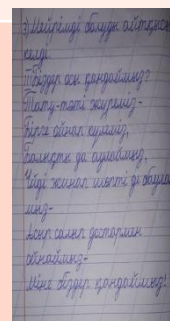 3) Мейрімді болуды айтқысы
келді.
Біздер осы қандаймыз?
Тату-тәтті жүреміз-
Бірге ойнап күлеміз,
Балықты да аулаймыз,
Үйді жинап шөпті де
мыз-
Асыр салып достармен
ойнаймыз-
Міне біздер қандаймыз!